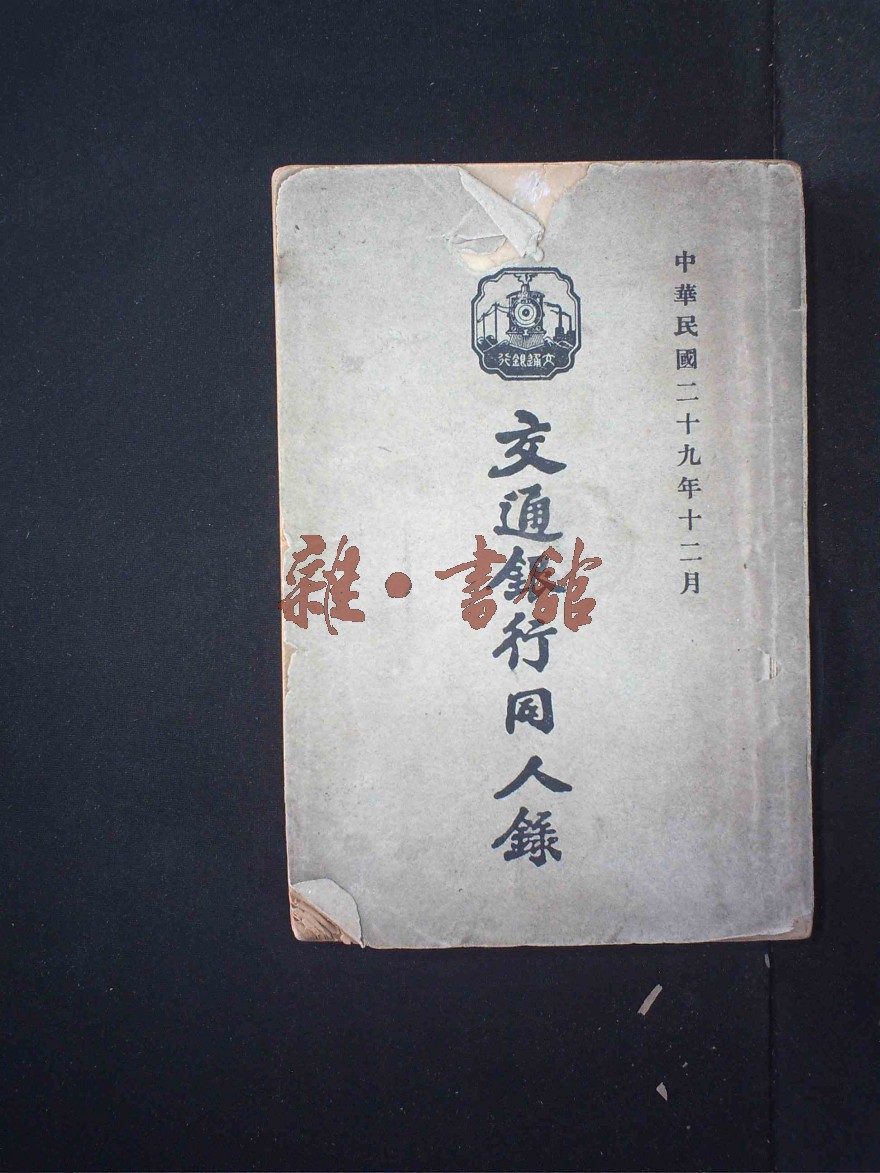 中華民國二十九年十二月
交通銀行
交通銀行同人錄
雜·書館